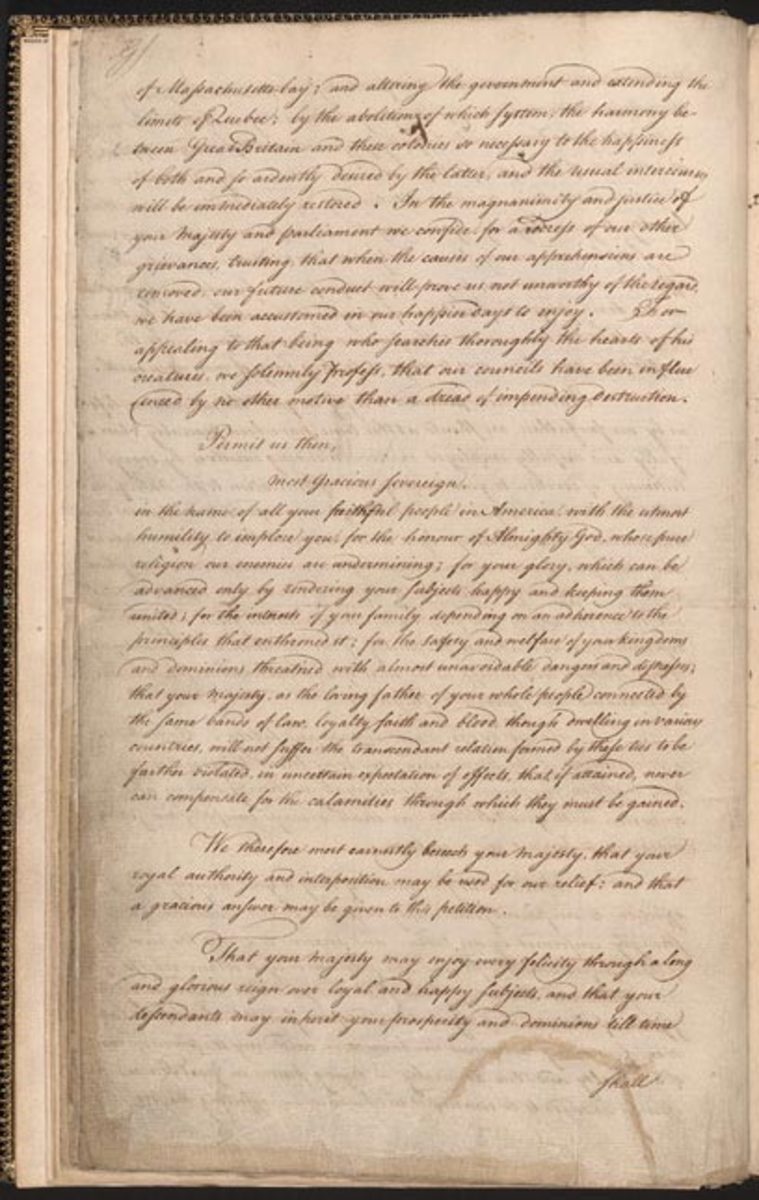 of Massachusetts-bay; and altering the government and extending the
limits of Quebec; by the abolition of which system, the harmony be-
tween Great Britain and these colonies so necessary to the happiness
of both and so ardently desired by the latter, and the usual intercourses
will be immediately restored. In the magnanimity and justice of
your Majesty and parliament we confide, for a redress of our other
grievances, trusting, that when the causes of our apprehensions are
removed, our future conduct will prove us not unworthy of the regard,
we have been accustomed in our happier days to enjoy. For
appealing to that being who searches thoroughly the hearts of his
creatures, we solemnly profess, that our councils have been influ
enced by no other motive than a dread of impending destruction.
Permit us then,
Most Gracious Sovereign,
in the name of all your faithful people in America, with the utmost
humility to implore you, for the honour of Almighty God, whose pure
religion our enemies are undermining; for your glory, which can be
advanced only by rendering your subjects happy and keeping them
united; for the interests of your family depending on an adherence to the
principles that enthroned it; for the safety and welfare of your kingdoms
and dominions threatned with almost unavoidable dangers and distresses;
that your majesty, as the loving father of your whole people, connected by
the same bands of law, loyalty, faith and blood, though dwelling in various
countries, will not suffer the transcendant relation formed by these ties to be
farther violated, in uncertain expectation of effects, that, if attained, never
can compensate for the calamities through which they must be gained.
We therefore most earnestly beseech your majesty, that your
royal authority and interposition may be used for our relief; and that
a gracious answer may be given to this petition.
That your majesty may enjoy every felicity through a long
and glorious reign over loyal and happy subjects, and that your
descendants may inherit your prosperity and dominions till time
shall